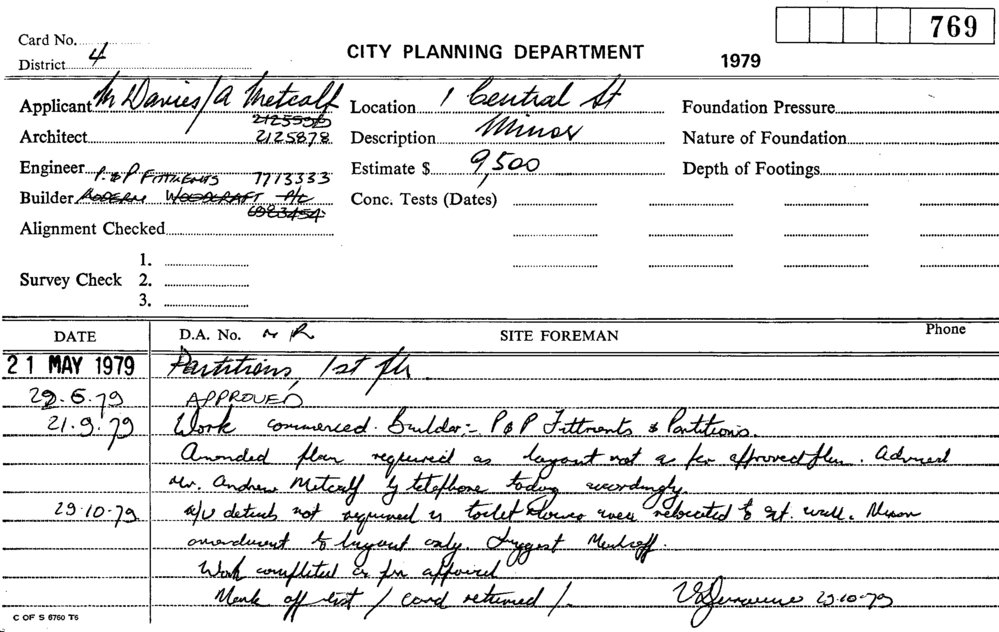 769
Card No.
CITY PLANNING DEPARTMENT
1979
District 4
Applicant M Davies/A Metcalf
Location 1 Central St
Foundation Pressure
Architect 2125878
Description Minor
Nature of Foundation
Engineer P. & P FITTMENTS 7713333
Estimate $ 9,500
Depth of Footings
Builder MODERN WOODCRAFT P/L
Conc. Tests (Dates)
6983454
Alignment Checked
1.
Survey Check 2.
3.
DATE D.A. No. N R SITE FOREMAN Phone
21 MAY 1979 Partitions, 1st flr.
29.6.79 APPROVED
21.9.79 Work commenced. Builder:- P & P Fittments & Partitions.
Amended plan required as layout not as per approved plan. Advised
Mr. Andrew Metcalf by telephone today accordingly.
29.10.79 a/v details not required as toilet were relocated to wall. Minor
amendment to layout only. Suggest Mark off.
Work completed as per approval
Mark off list / card returned /. 29.10.79
C OF S 6760 T6